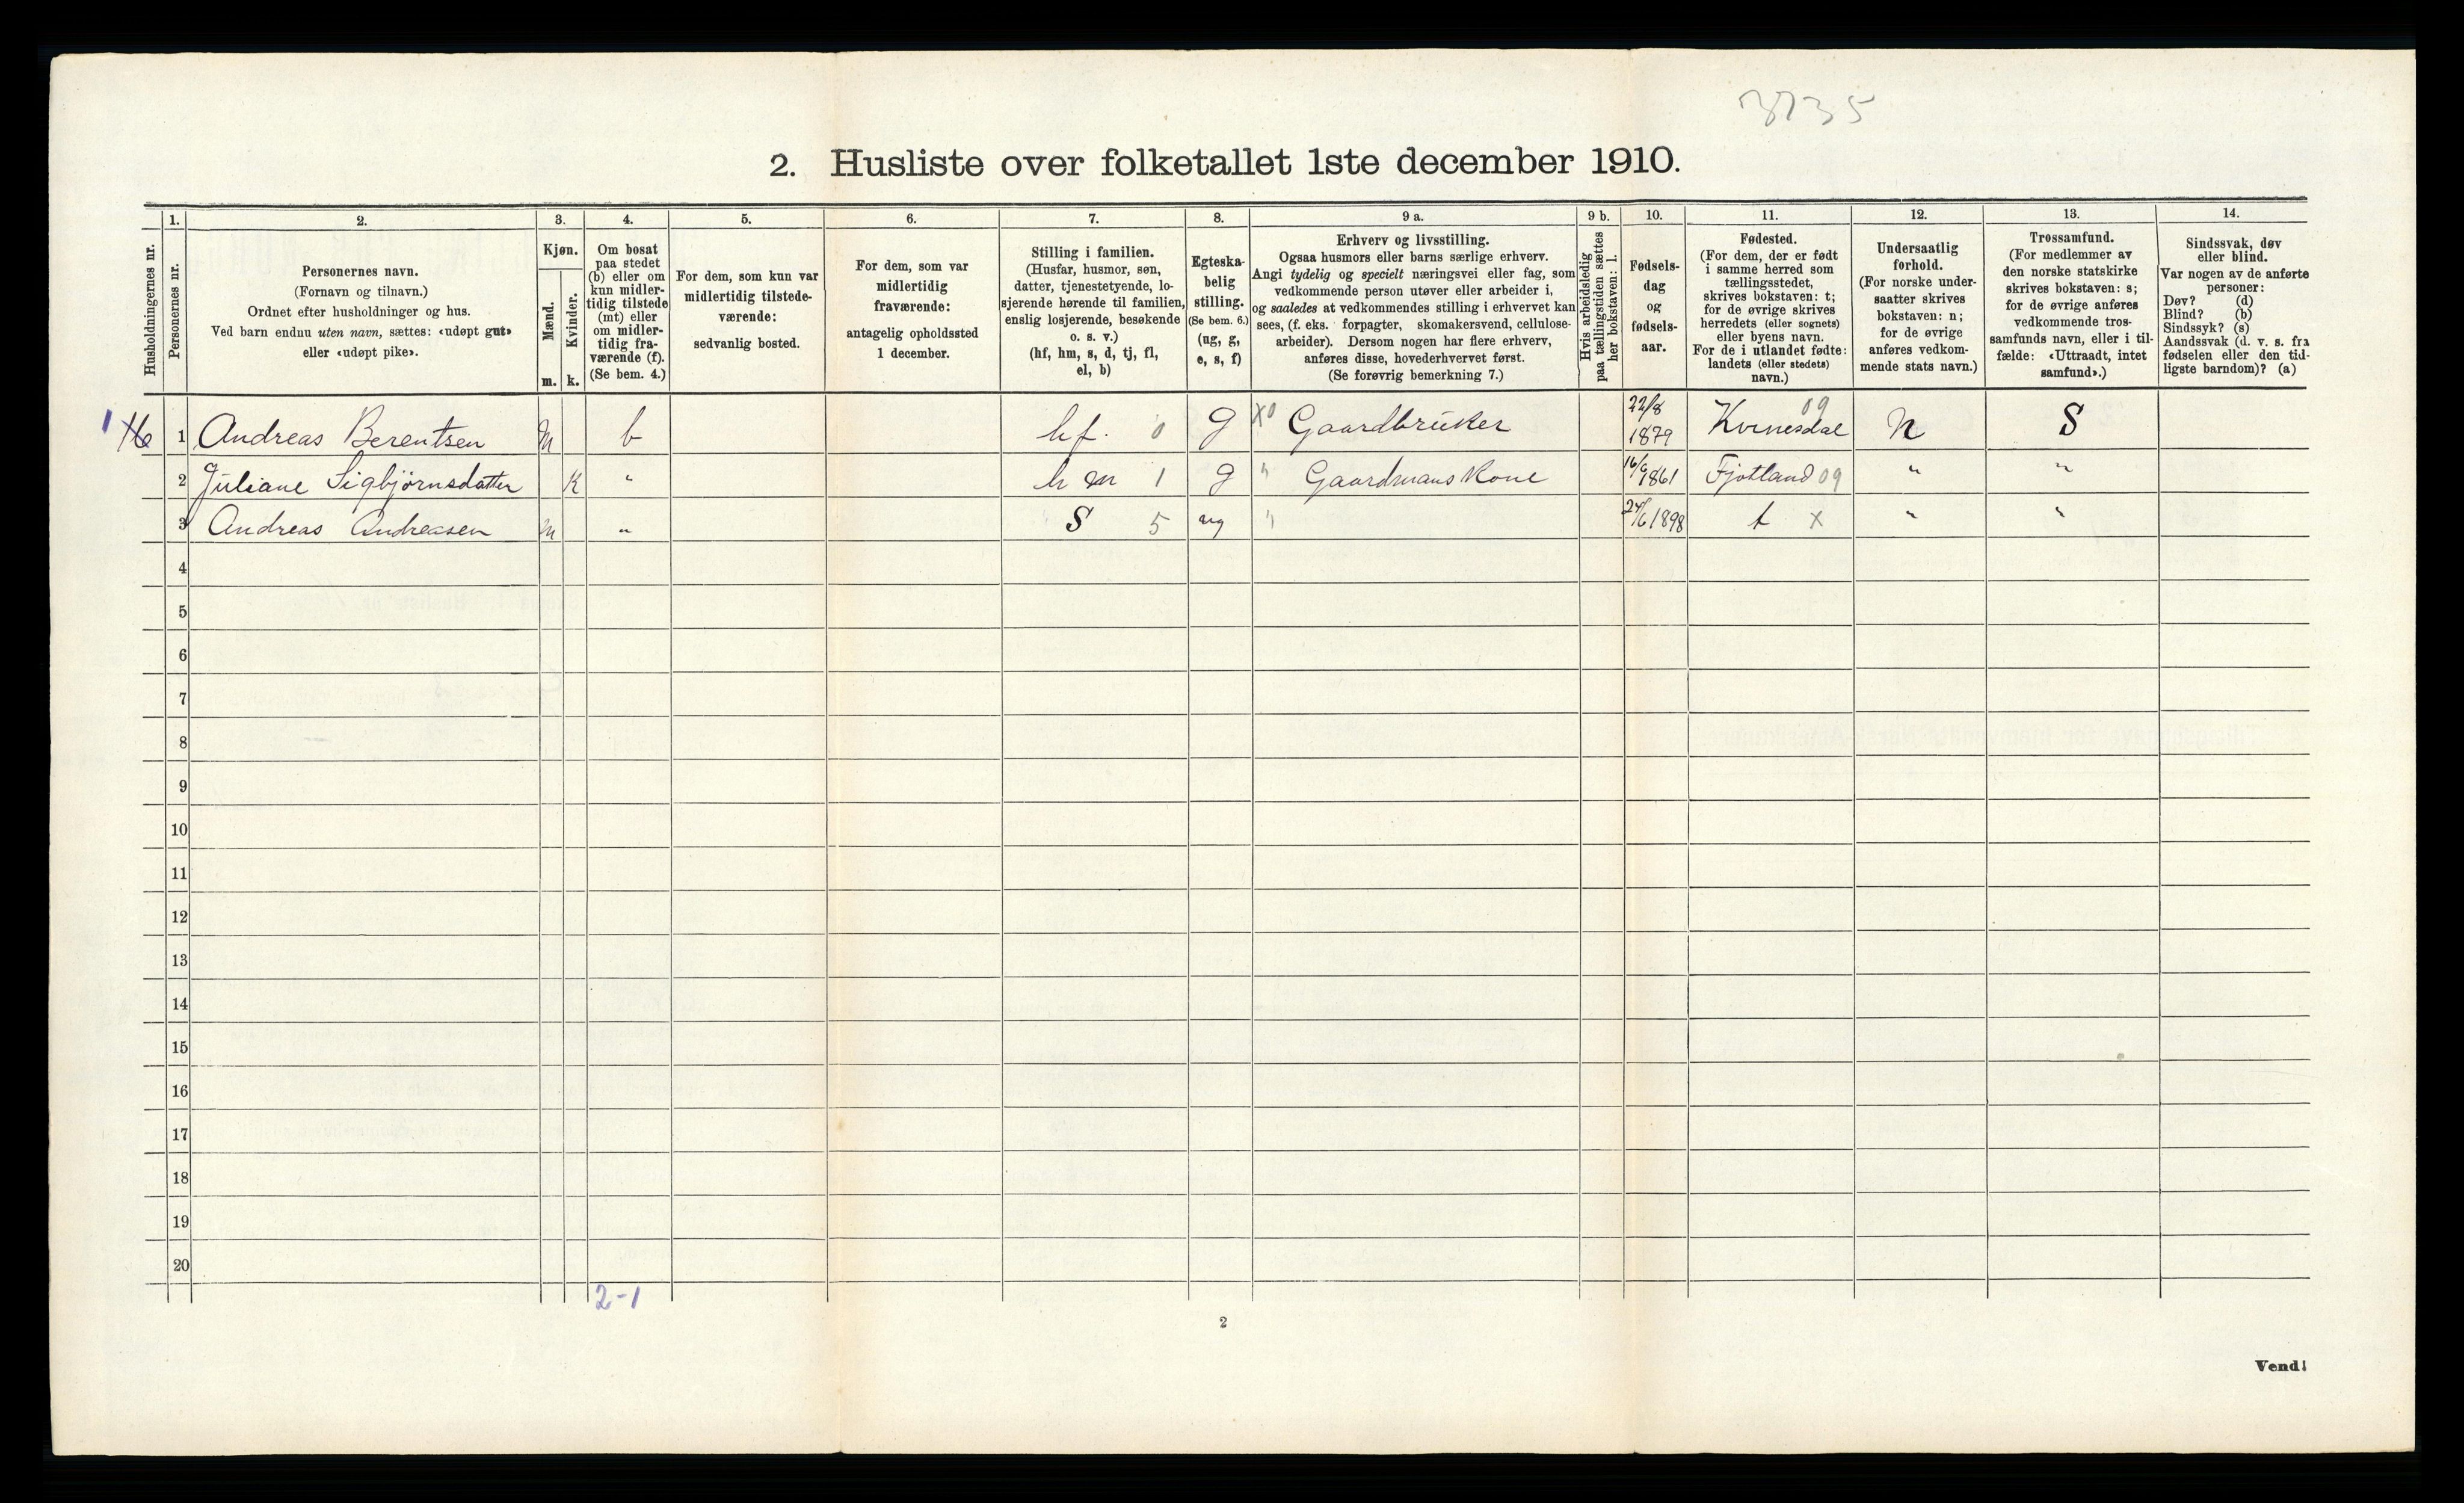 3735
2. Husliste over folketallet 1ste december 1910.
Husholdningernes nr.
1.
Personernes nr.
2.
Personernes navn.
(Fornavn og tilnavn.)
Ordnet efter husholdninger og hus.
Ved barn endnu uten navn, sættes: «udøpt gut»
eller «udøpt pike».
3.
Kjøn.
Mænd.
Kvinder.
m. k.
4.
Om bosat
paa stedet
(b) eller om
kun midler-
tidig tilstede
(mt) eller
om midler-
tidig fra-
værende (f).
(Se bem. 4.)
5.
For dem, som kun var
midlertidig tilstede-
værende:
sedvanlig bosted.
6.
For dem, som var
midlertidig
fraværende:
antagelig opholdssted
1 december.
7.
Stilling i familien.
(Husfar, husmor, søn,
datter, tjenestetyende, lo-
sjerende hørende til familien,
enslig losjerende, besøkende
o. s. v.)
(hf, hm, s, d, tj, fl,
el, b)
8.
Egteska-
belig
stilling.
(Se bem. 6.)
(ug, g,
e, s, f)
9 a.
Erhverv og livsstilling.
Ogsaa husmors eller barns særlige erhverv.
Angi tydelig og specielt næringsvei eller fag, som
vedkommende person utøver eller arbeider i,
og saaledes at vedkommendes stilling i erhvervet kan
sees, (f. eks. forpagter, skomakersvend, cellulose-
arbeider). Dersom nogen har flere erhverv,
anføres disse, hovederhvervet først.
(Se forøvrig bemerkning 7.)
9 b.
Hvis arbeidsledig
paa tællingstiden sættes
her bokstaven: l.
10.
Fødsels-
dag
og
fødsels-
aar.
11.
Fødested.
(For dem, der er født
i samme herred som
tællingsstedet,
skrives bokstaven: t;
for de øvrige skrives
herredets (eller sognets)
eller byens navn.
For de i utlandet fødte:
landets (eller stedets)
navn.)
12.
Undersaatlig
forhold.
(For norske under-
saatter skrives
bokstaven: n;
for de øvrige
anføres vedkom-
mende stats navn.)
13.
Trossamfund.
(For medlemmer av
den norske statskirke
skrives bokstaven: s;
for de øvrige anføres
vedkommende tros-
samfunds navn, eller i til-
fælde: «Uttraadt, intet
samfund».)
14.
Sindssvak, døv
eller blind.
Var nogen av de anførte
personer:
Døv? (d)
Blind? (b)
Sindssyk? (s)
Aandssvak (d. v. s. fra
fødselen eller den tid-
ligste barndom)? (a)
1 1 Andreas Berentsen m b hf. 0 g X0 Gaardbruker 22/8 1879 Kvinesdal 09 n S
2 Juliane Sigbjørnsdatter k " hm 1 g " Gaardmans Kone 16/9 1861 Fjotland 09 " "
3 Andreas Andreasen m " S 5 ug " 24/6 1898 t X " "
4
5
6
7
8
9
10
11
12
13
14
15
16
17
18
19
20
2-1
2
Vend!